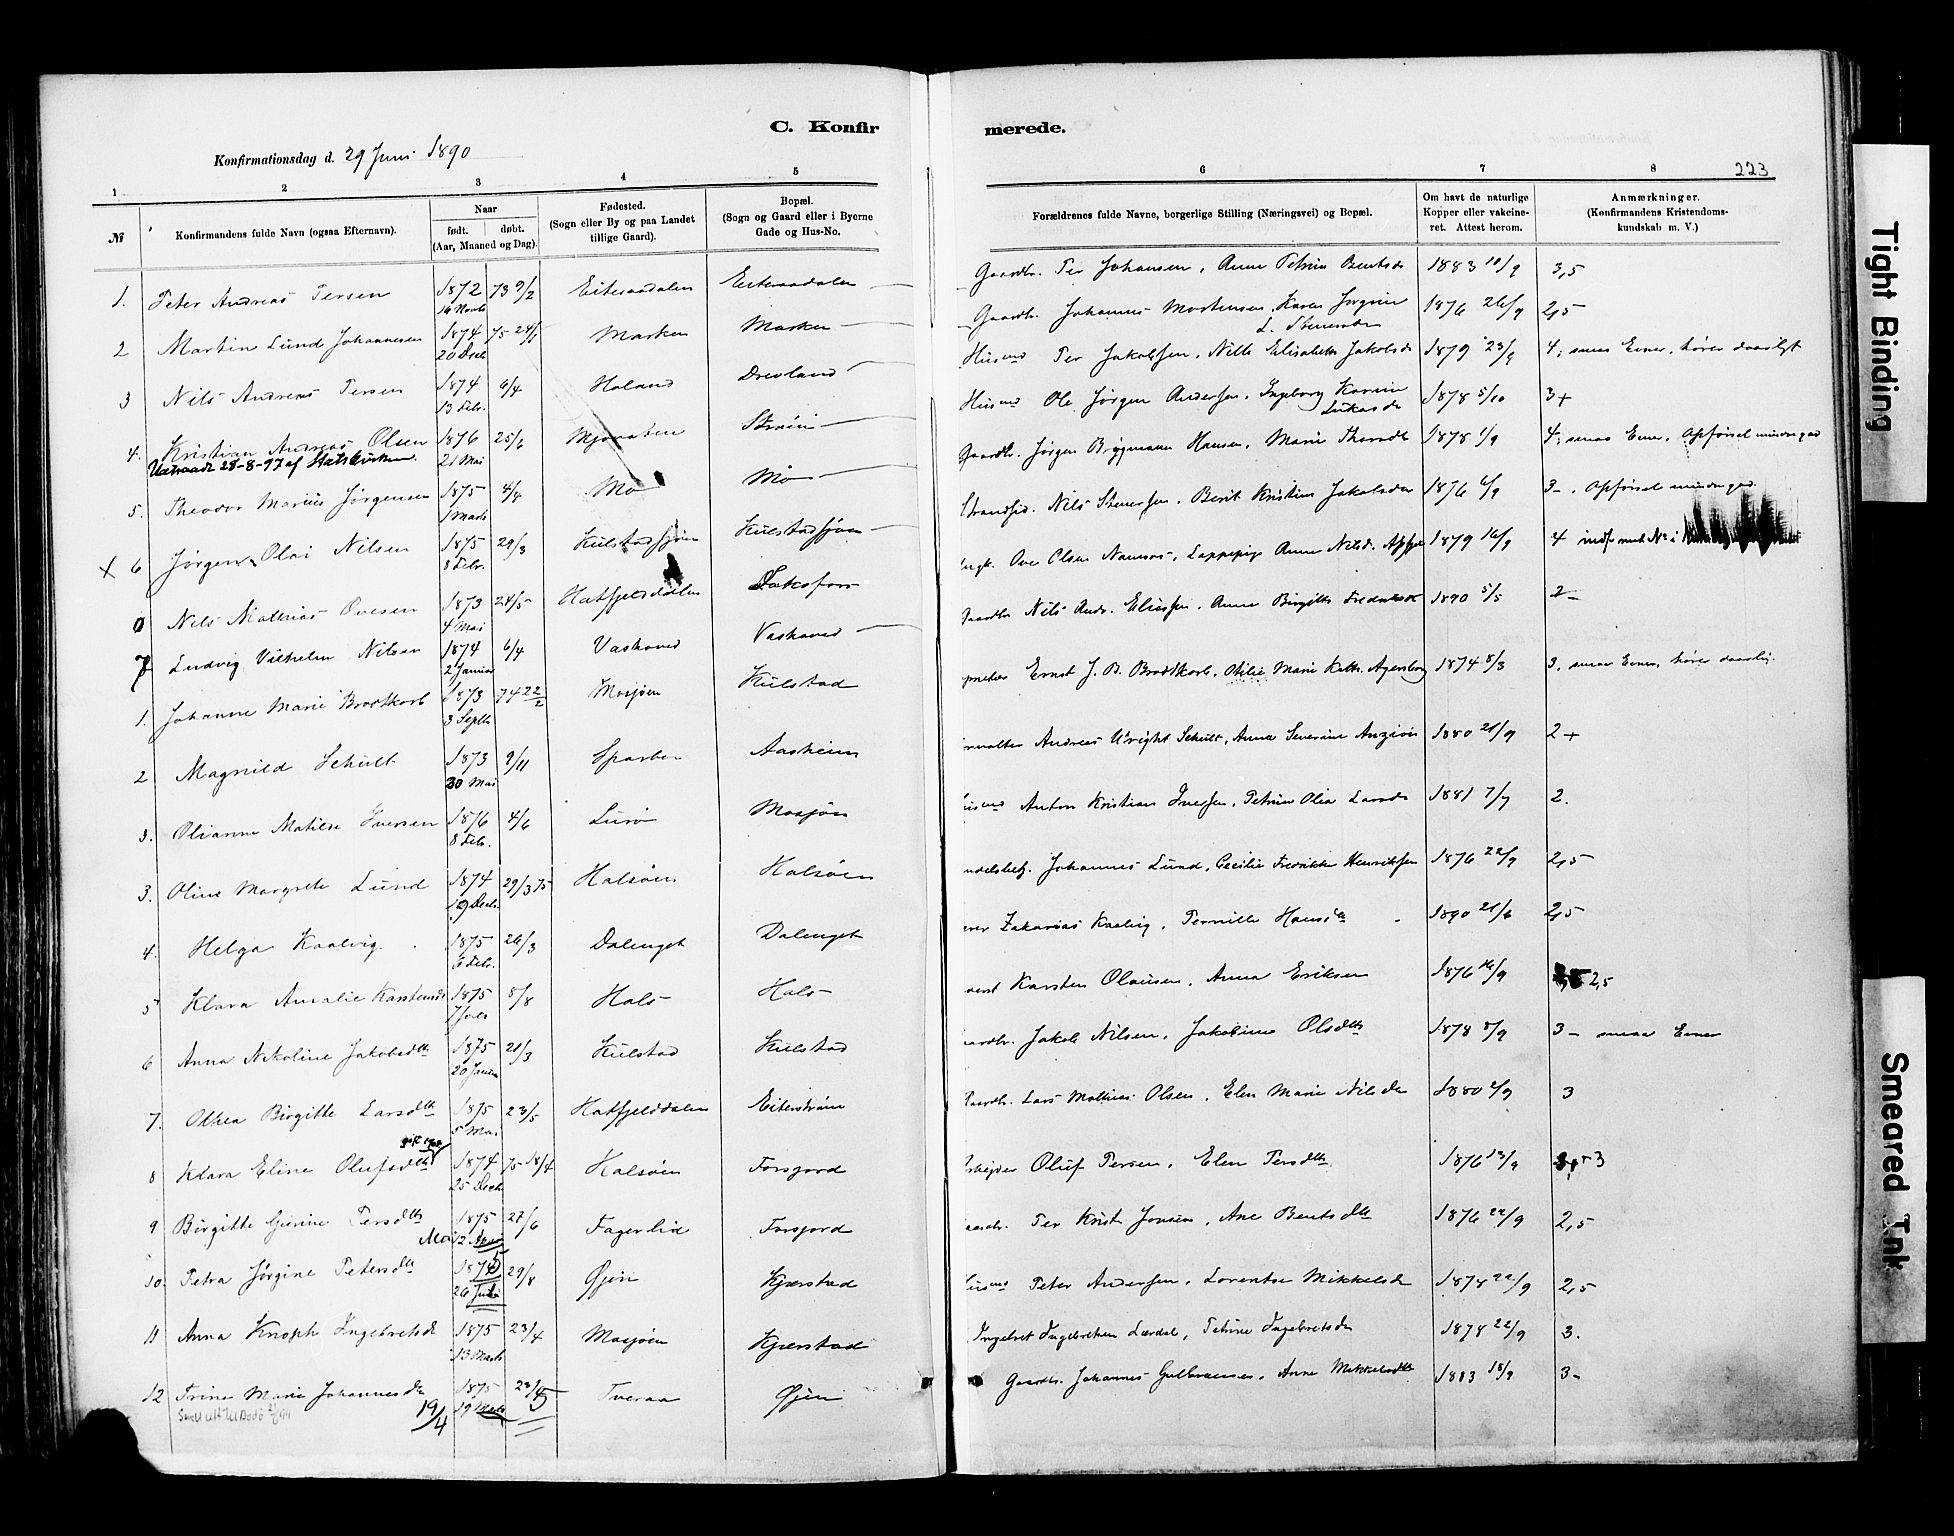 C. Konfirmerede.
Konfirmationsdag d. 29 Juni 1890
223
1 2 3 4 5 6 7 8
№
Konfirmandens fulde Navn (ogsaa Efternavn).
Naar
født. døbt.
(Aar, Maaned og Dag).
Fødested.
(Sogn eller By og paa Landet
tillige Gaard).
Bopæl.
(Sogn og Gaard eller i Byerne
Gade og Hus-No.
Forældrenes fulde Navne, borgerlige Stilling (Næringsvei) og Bopæl.
Om havt de naturlige
Kopper eller vakcine-
ret. Attest herom.
Anmærkninger.
(Konfirmandens Kristendoms-
kundskab m. V.)
1. Peter Andreas Persen 1872 16 Novb 73 9/2 Eiteraadalen Eiteraadalen Gaardbr. Per Johansen, Anne Petrine Bentsd 1883 10/9 3,5
2 Martin Lund Johannesen 1874 20 Decb 75 24/1 Marken Marken Gaardbr. Johannes Mortensen, Karen Jorgine L. Stenersen 1876 26/9 2,5
3 Nils Andreas Persen 1874 13 Febr. 6/4 Holand Drevland Husmd Per Jakobsen, Nille Elisabeth Jakobsd 1879 23/9 4; smaa Evner, hører daarligt
4. Kristian Andreas Olsen 1876 21 Mai 25/6 Mjovatten Strøin Husmd Ole Jørgen Andersen, Ingeborg Karine Lukasd 1878 5/10 3+
Udtraadt 28-8-97 af Statskirken.
5. Theodor Marius Jørgensen 1875 1 Marts 4/4 Mo Mo Gaardbr. Jørgen Brygmann Hansen, Marie Thorsd 1878 1/9 4; smaa Evner, Opførsel mindre god
X 6 Jørgen Olai Nilsen 1875 8 Febr. 29/3 Kulstadsjøen Kulstadsjøen Strandsid. Nils Stenersen, Berit Kristine Jakobsdr 1876 6/9 3-, Opførsel mindre god
0 Nils Mathias Ovesen 1873 4 Mai 24/5 Hatfjelddalen Laksfors Ove Olsen Namsos, Lappepige Anne Nilsd. 1879 16/9 4
7 Ludvig Vilhelm Nilsen 1874 2 Januar 6/4 Vashoved Vashoved Gaardbr Nils Andr. Eliassen, Anne Birgitte Fredriksd 1890 5/5 2-
1. Johanne Marie Brodtkorb 1873 3 Septb 74 22/2 Mosjøen Kulstad Ernst J. B. Brodtkorb, Otilie Marie Kath. Agersborg 1874 8/3 3, smaa Evner, hører daarlig.
2 Magnild Schult 1873 30 Mai 9/11 Sparbu Aasheim Andreas Wright Schult, Anna Severine Anzion 1880 21/9 2+
3. Olianne Matilde Iversen 1876 8 Febr. 4/6 Lurø Mosjøn Husmd Anton Kristian Iversen, Petrine Olia Larsd 1881 7/7 2.
3. Oline Margrete Lund 1874 19 Decb. 29/3 75 Halsøen Halsøen Johannes Lund, Cecilie Fredrikke Henriksen 1876 22/9 2,5
4. Helga Kaalvig. 1875 6 Febr. 26/3 Dalenget Dalenget Zakarias Kaalvig, Pernille Hansdtr 1890 21/6 2,5
5 Klara Amalie Karstensd 1875 7 Juli 8/8 Hals Hals Karsten Olausen, Anna Eriksen 1876 16/9 2,5
6 Anna Nikoline Jakobsdtr 1875 20 Januar 21/3 Kulstad Kulstad Gaardbr. Jakob Nilsen, Jakobine Olsdtr 1878 8/9 3- smaa Evner
7. Othea Birgitte Larsdtr 1875 5 Mai 23/5 Hatfjelddalen Eiterstrøm Gaardbr. Lars Mathias Olsen, Elen Marie Nilsdr 1880 2/9 3
8 Klara Eline Olufsdtr 1874 25 Decb 75 18/4 Halsøen Forsjord Arbejder Oluf Persen, Elen Persdtr. 1876 13/9 3
9 Birgitte Gurine Persdtr 1875 12 Mai 27/6 Fagerlid Forsjord Gaardbr. Per Krist. Jonsen, Ane Bentsdtr 1876 22/9 2,5
10. Petra Jørgine Petersdtr 1875 26 Juli 29/8 Øjen Kjærstad Husmd Peter Andersen, Lorentse Mikkelsd 1878 22/9 2,5
11 Anna Knoph Ingebretsd 1875 13 Marts 23/4 Mosjøen Kjærstad Ingebret Ingebretsen Lærdal, Petrine Ingebretsdr 1878 22/9 3.
12 Trine Marie Johannesdr 1875 19 Marts 19/4 5 Tveraa Øjen Gaardbr. Johannes Gulbransen, Anne Mikkelsdtr 1883 15/9 3-
Tight Binding
Smeared Ink